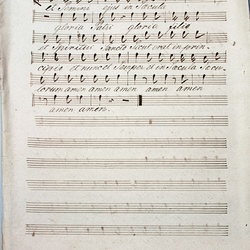 et Semini ejus in Sæcula
gloria Patri gloria Filio
et Spiritui Sancto Sicut erat in prin,
cipio et nunc et Semper et in Sæcula Sæcu,
lorum amen amen amen amen amen
amen amen.